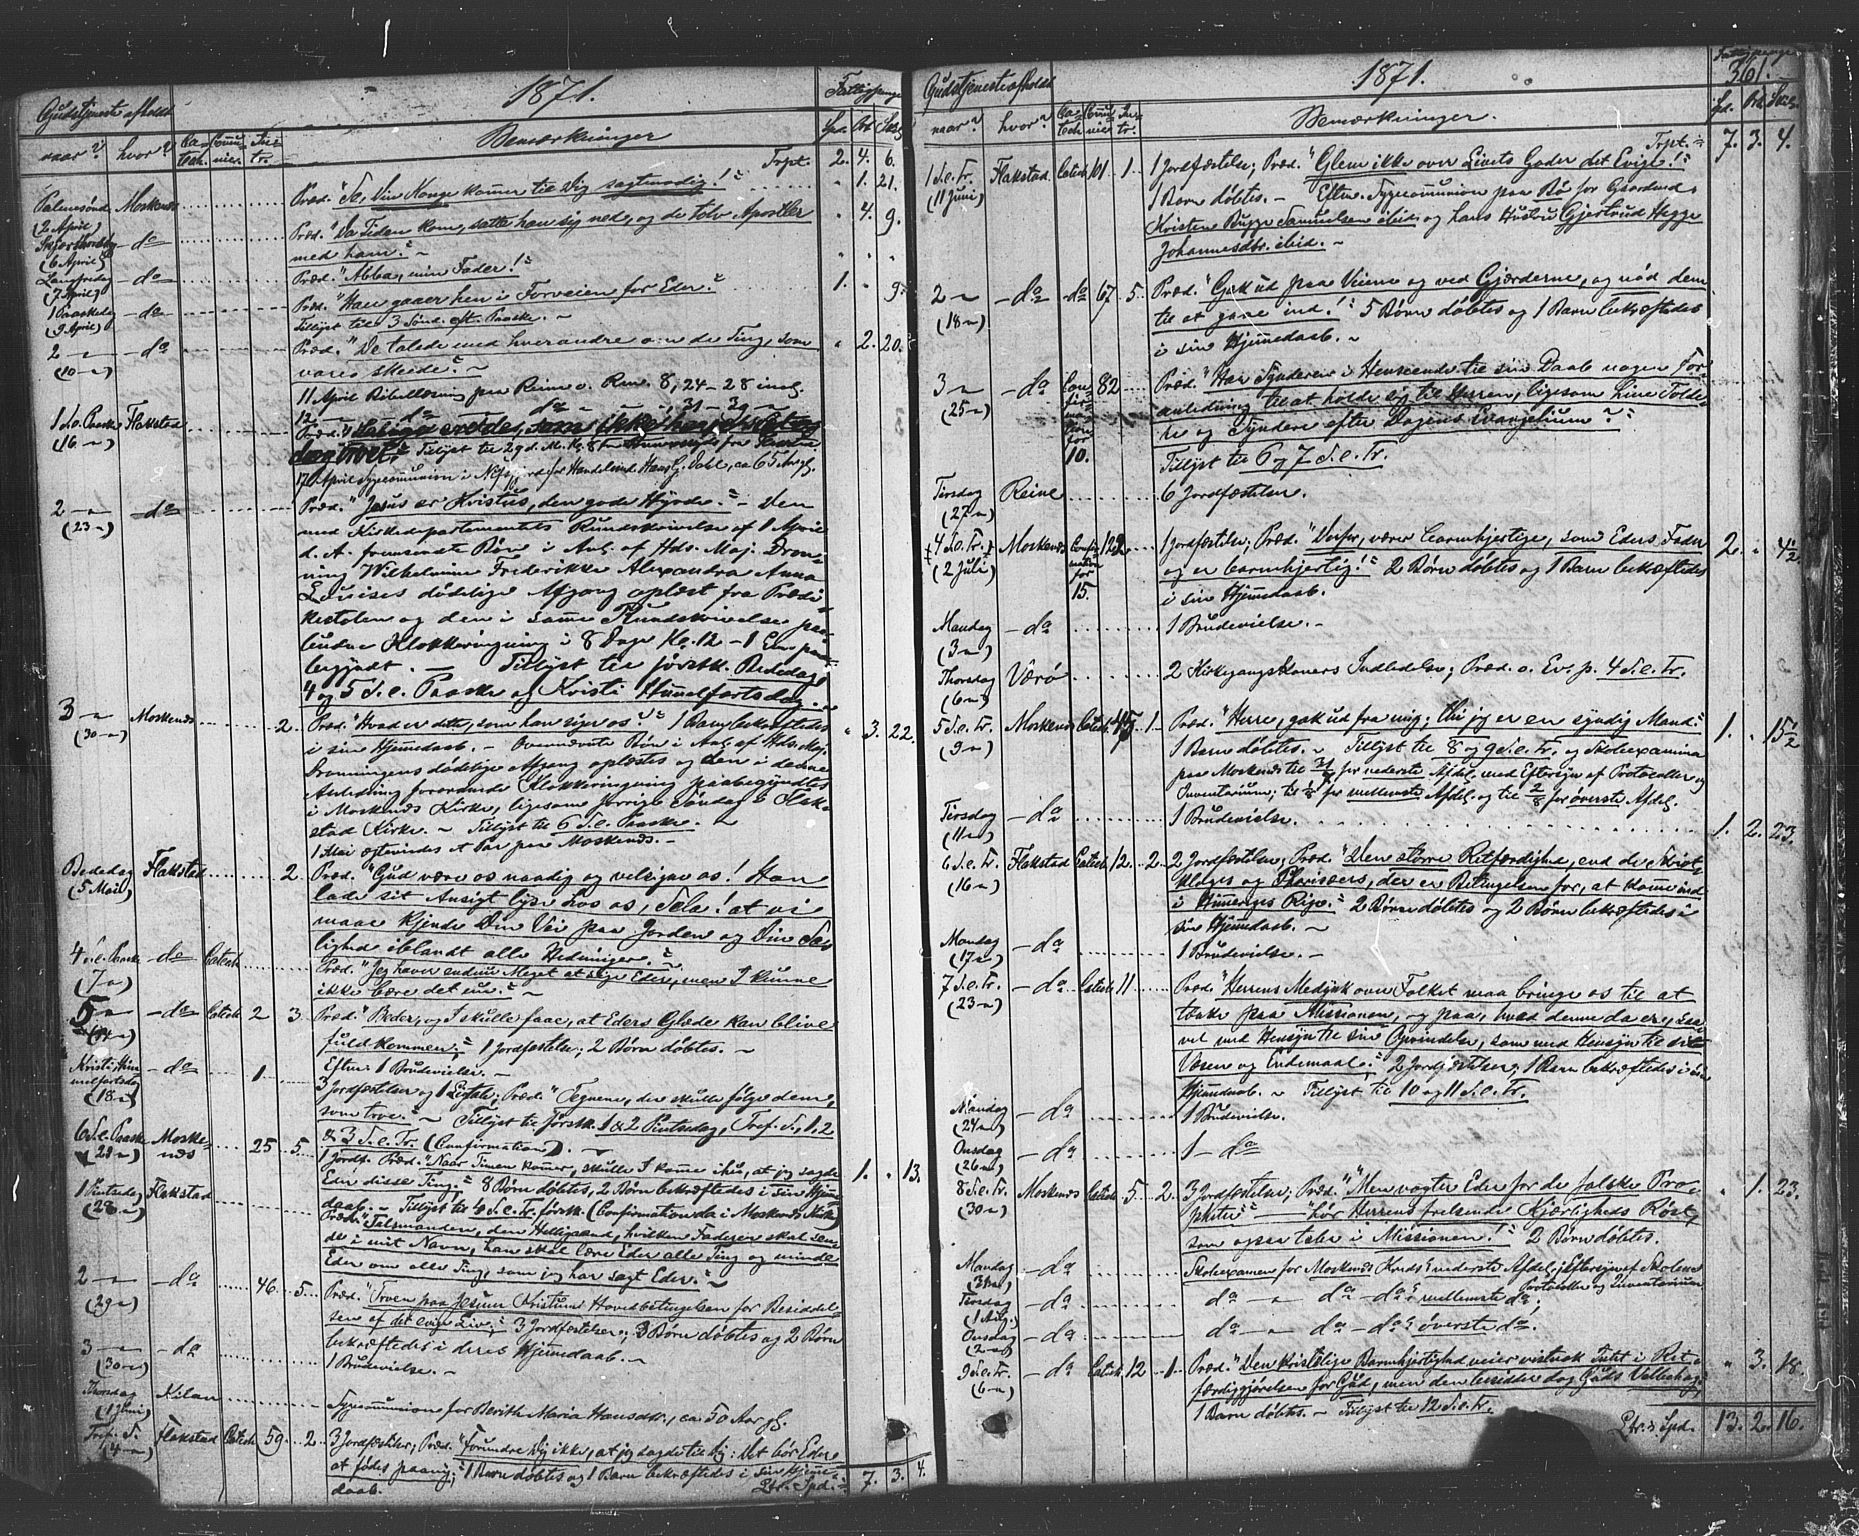 1871.
Gudstjeneste afholdt
Fattigpenge
naar? hvor? Ca-tech. Comu-nier. In-tr.
Bemærkninger
Spd. Ort Skg.
Trpt. 2. 4. 6.
Palmesønd. (2 April) Moskenæs Præd. "Se, Din Konge kommer til Dig sagtmodig!" " 1. 21.
Skjærthorsdag (6 April) – do Præd. "Da Tiden kom, satte han sig ned, og de tolv Apostler " 4. 9.
med ham."
Langfredag (7 April) – do Præd. "Abba, min Fader!" " " "
1 Paaskedag (9 April) – do Præd. "Han gaaer hen i Forveien for Eder." 1. " 9.
Tillyst til 3 Sønd. eft. Paaske. ~
2 – (10 –) – do Præd. "De talede med hverandre om de Ting, som " 2. 20.
vare skeede." ~
11 April Bibellæsning paa Reine o. Rom. 8, 24–28 incl.
12 – – do – – do – – – 31–39 –
1 S. e. Paaske (16 –) Flakstad Præd. "Salige ere de, som ikke have seet og
dog troet." Tillyst til
17 April Sygecommunion i Nefjord for Handelsmd. Hans G. Dahl, ca 65 Aar gl.
2 – (23 –) – do Præd. "Jesus er Kristus, den gode Hyrde." – Den
med Kirkedepartementets Rundskrivelse af 1 April
d. A. fremsendte Bøn i Anl. af Hds. Maj. Dron-
ning Wilhelmine Frederikke Alexandra Anna
Louises dødelige Afgang oplæst fra Prædi-
kestolen og den i samme Rundskrivelse paa-
budne Klokkeringning i 8 Dage Kl. 12 – 1 Em. paa-
begyndt. – Tillyst til førstk. Bededag,
4 og 5 S. e. Paaske og Kristi Himmelfartsdag. ~
3 – (30 –) Moskenæs 2. Præd. "Hvad er dette, som han siger os?" 1 Barn bekræftedes " 3. 22.
i sin Hjemmedaab. – Ovennævnte Bøn i Anl. af Hds. Maj.
Dronningens dødelige Afgang oplæstes og den i denne
Anledning forordnede Klokkeringning paabegyndtes
i Moskenæs Kirke, ligesom forrige Søndag i Flak-
stad Kirke. ~ Tillyst til 6 S. e. Paaske. ~
1 Mai ægteviedes et Par paa Moskenæs. –
Bededag (5 Mai) Flakstad 2. Præd. "Gud være os naadig og velsigne os! Han
lade sit Ansigt lyse hos os, Sela! at vi
maae kjende Din Vei paa Jorden og Din Sa-
lighed iblandt alle Hedninger." ~
4 S. e. Paaske (7 –) – do Catech. Præd. "Jeg haver endnu Meget at sige Eder, men I kunne
ikke bære det nu." ~
5 – (14 –) – do Catech. 2 3. Præd. "Beder, og I skulle faae, at Eders Glæde kan blive
fuldkommen." 1 Jordfæstelse; 2 Børn døbtes. ~
Efter 1 Brudevielse. ~
Kristi Him-melfartsdag (18 –) – do 1 3 Jordfæstelser og 1 Ligtale; Præd. "Tegnene, der skulle følge dem,
som troe." ~ Tillyst til førstk. 1 & 2 Pintsedag, Tref. S., 1, 2
& 3 S. e. Tr. (Confirmation). ~
6 S. e. Paaske (21 –) Moske-næs 25. 5. 1 Jordf. Præd. "Naar Timen kommer, skulle I komme ihu, at jeg sagde 1. " 13.
Eder disse Ting." 8 Børn døbtes, 2 Børn bekræftedes i sin Hjemme-
daab. – Tillyst til 4 S. e. Tr. førstk. (Confirmation da i Moskenæs Kirke)
1 Pintsedag (28 –) Flakstad Præd. "Talsmanden, den Helligaand, hvilken Faderen skal sen-
de i mit Navn, han skal lære Eder alle Ting og minde
Eder om alle Ting, som jeg har sagt Eder." ~
2 – (29 –) – do 46. 5. Præd. "Troen paa Jesum Kristum Hovedbetingelsen for Besiddel-
sen af det evige Liv." 3 Jordfæstelser; 3 Børn døbtes og 2 Børn
bekræftedes i deres Hjemmedaab. ~
3 – (30 –) – do 1 Brudevielse. ~
Thorsdag (1 Juni) Kilan Sygecommunion for Berith Maria Hansdtr., ca. 50 Aar gl.
Tref. S. (4 –) Flakstad Catech. 59. 2. 3 Jordfæstelser; Præd. "Forundre Dig ikke, at jeg sagde til Dig: Det bør Eder
at fødes paany." 1 Barn døbtes og 1 Barn bekræftedes i sin Hjemme-
daab. Ltr. Spd. 7. 3. 4.
1871.
361.
Gudstjeneste afholdt
Fattigpenge
naar? hvor? Ca-tech. Comu-nier. In-tr.
Bemærkninger.
Spd. Ort Skg.
Trpt. 7. 3. 4.
1 S. e. Tr. (11 Juni) Flakstad Catech. 101 1. 1 Jordfæstelse; Præd. "Glem ikke over Livets Goder det Evige!"
1 Barn døbtes. – Efterm. Sygecommunion paa Bø for Gaardmd.
Kristen Bugge Samuelsen ibid. og hans Hustru Gjertrud Hegge
Johannesdtr. ibid. ~
2 – (18 –) – do – do 67. 5. Præd. "Gak ud paa Veiene og ved Gjærderne, og nød dem
til at gaae ind!" 5 Børn døbtes og 1 Barn bekræftedes
i sin Hjemmedaab. ~
3 – (25 –) – do Con-fir-ma-tion for 10. 82 Præd. "Har Synderen i Henseende til sin Daab nogen For-
anledning til at holde sig til Herren, ligesom hine Tolde-
re og Syndere efter Dagens Evangelium?"
Tillyst til 6 og 7 S. e. Tr.
Tirsdag (27 –) Reine 6 Jordfæstelser.
4 S. e. Tr. (2 Juli) Moskenæs Confir-mation for 15. 122 1 Jordfæstelse; Præd. "Derfor, værer barmhjertige, som Eders Fader 2. " 4½
og er barmhjertig!" 2 Børn døbtes og 1 Barn bekræftedes
i sin Hjemmedaab.
Mandag (3 –) – do 1 Brudevielse. ~
Thorsdag (6 –) Værø 2 Kirkegangskoners Indledelse; Præd. o. Ev. p. 4 S. e. Tr.
5 S. e. Tr. (9 –) Moskenæs Catech. 45 1. Præd. "Herre, gak ud fra mig; thi jeg er en syndig Mand." 1. " 15½
1 Barn døbtes. ~ Tillyst til 8 og 9 S. e. Tr. og Skoleexamina
paa Moskenæs til 31/7 for nederste Afdel. med Eftersyn af Protocoller og
Inventarium; til 1/8 for mellemste Afdel. og til 2/8 for øverste Afdel.
Tirsdag (11 –) – do 1 Brudevielse. 1. 2. 23.
6 S. e. Tr. (16 –) Flakstad Catech. 12. 2. 2 Jordfæstelser; Præd. "Den større Retfærdighed, end de Skrift-
kloges og Pharisæers, der er Betingelsen for, at komme ind
i Himmeriges Rige." 2 Børn døbtes og 2 Børn bekræftedes i
sin Hjemmedaab. ~
Mandag (17 –) – do 1 Brudevielse. ~
7 S. e. Tr. (23 –) – do Catech. 11. Præd. "Herrens Medynk over Folket maa bringe os til at
tænke paa Missionen, og paa, hvad denne da er, saa-
vel med Hensyn til sin Oprindelse, som med Hensyn til sit
Væsen og Endemaal." 2 Jordfæstelser; 1 Barn bekræftedes i sin
Hjemmedaab. ~ Tillyst til 10 og 11 S. e. Tr.
Mandag (24 –) – do 1 Brudevielse.
Onsdag (26 –) – do 1 – do
8 S. e. Tr. (30 –) Moskenæs Catech. 5. 2. 3 Jordfæstelser; Præd. "Men vogter Eder for de falske Pro- " 1. 23.
pheter" – "hør Herrens frelsende Kjærligheds Røst,
som ogsaa taler i Missionen!" 2 Børn døbtes.
Mandag (31 –) – do Skoleexamen for Moskenæs Kreds's nederste Afdel.; Eftersyn af Skolens
Protocoller og Inventarium
Tirsdag (1 Aug.) – do do – do – do's mellemste do;
Onsdag (2 –) – do do – do – do's øverste do.
9 S. e. Tr. (6 –) – do Catech. 12. 1. Præd. "Den kristelige Barmhjertighed veier vistnok Intet i Ret- " 3. 18.
færdiggjørelsen for Gud, men den besidder dog Guds Velbehag."
1 Barn døbtes. – Tillyst til 12 S. e. Tr.
Ltr. Spd. 13. 2. 16.